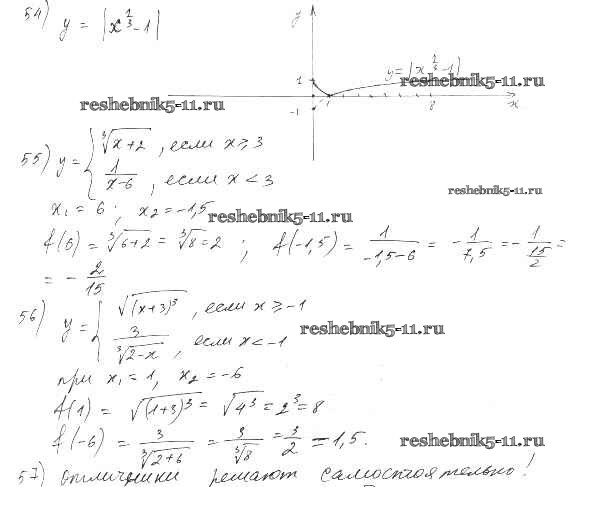 54) y = |x^(2/3) - 1|
y
1
-1
1
8
x
y = |x^(2/3) - 1|
reshebnik5-11.ru
reshebnik5-11.ru
55) y = { ∛(x+2), если x ≥ 3
1/(x-6), если x < 3
reshebnik5-11.ru
x₁ = 6; x₂ = -1,5
reshebnik5-11.ru
f(6) = ∛(6+2) = ∛8 = 2; f(-1,5) = 1/(-1,5-6) = -1/7,5 = -1/(15/2) =
= -2/15
56) y = { √((x+3)³), если x ≥ -1
3/∛(2-x), если x < -1
reshebnik5-11.ru
при x₁ = 1, x₂ = -6
f(1) = √((1+3)³) = √(4³) = 2³ = 8
f(-6) = 3/∛(2+6) = 3/∛8 = 3/2 = 1,5.
reshebnik5-11.ru
57) отличники решают самостоятельно!